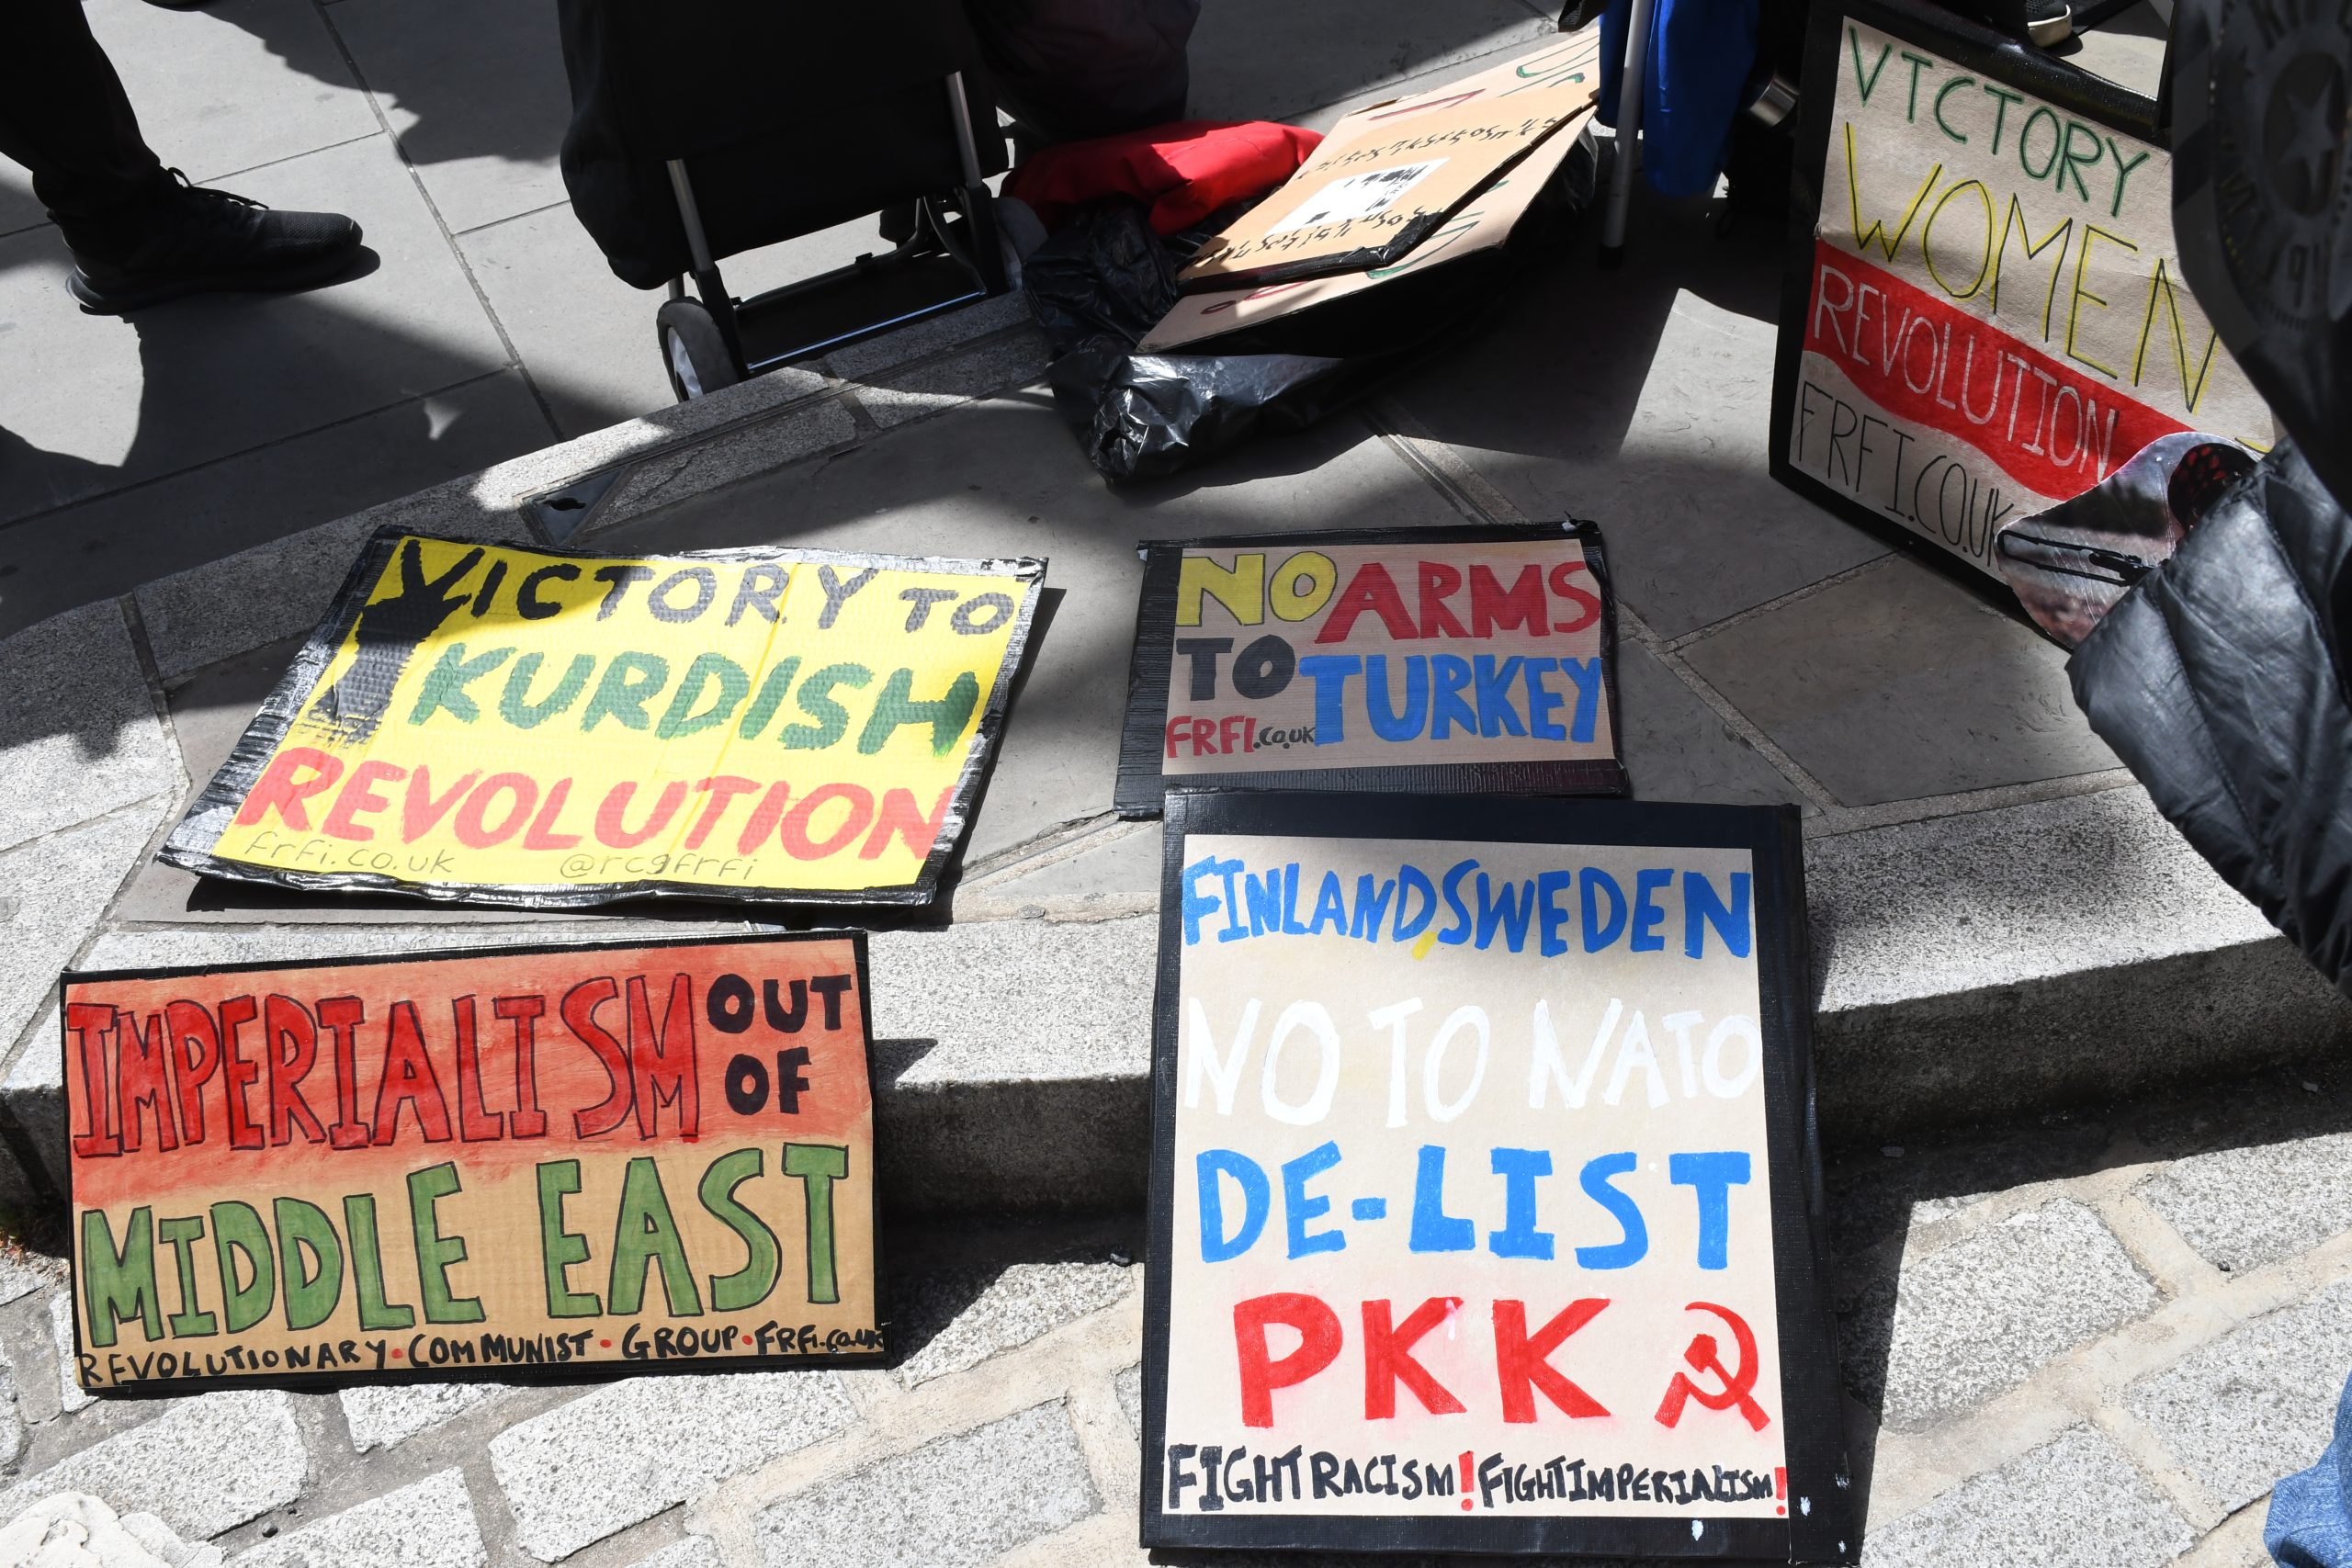 VICTORY
WOMEN
REVOLUTION
FRFI.CO.UK
VICTORY TO
KURDISH
REVOLUTION
frfi.co.uk @rcgfrfi
NO ARMS
TO TURKEY
FRFI.co.uk
IMPERIALISM OUT
OF
MIDDLE EAST
REVOLUTIONARY • COMMUNIST • GROUP • FRFI.co.uk
FINLAND, SWEDEN
NO TO NATO
DE-LIST
PKK
FIGHT RACISM! FIGHT IMPERIALISM!